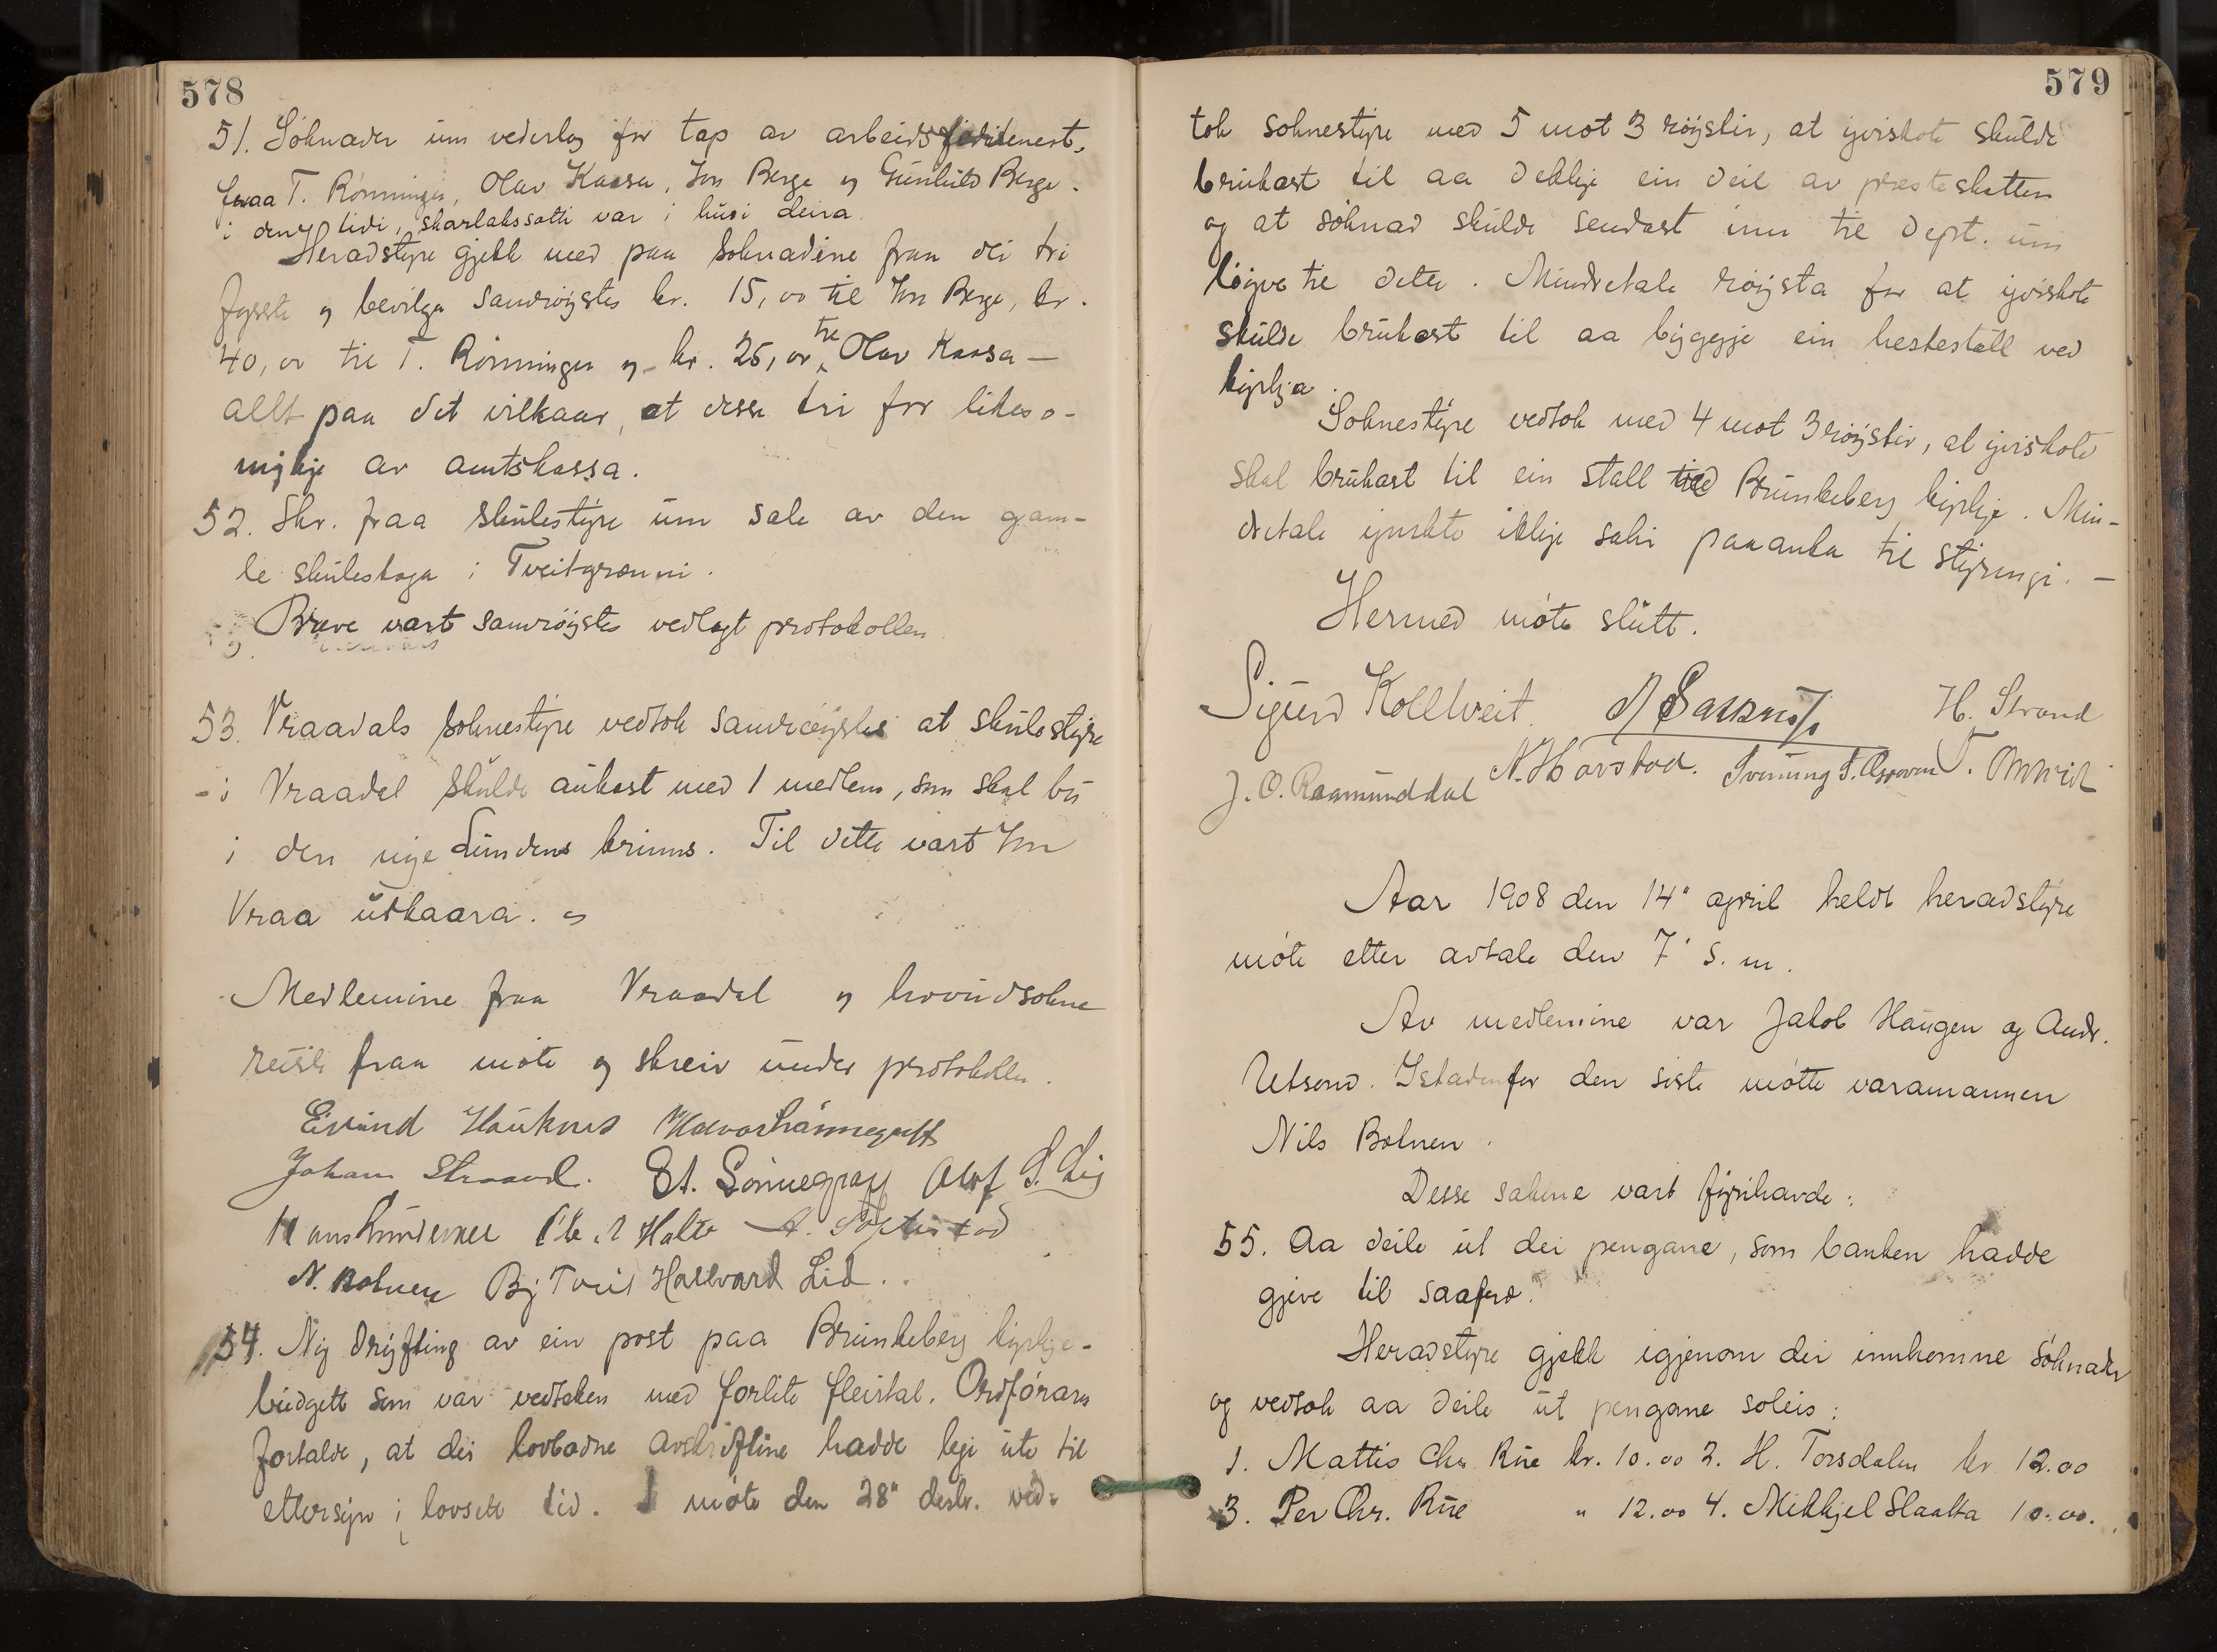 578
51. Søknader um vederlag for tap av arbeidsfortenest,
fraa T. Rønningen, Olav Kaasa, Jon Berge og Gunhild Berge.
i den tidi, skarlakssotti var i husi deira.
Heradstyre gjekk med paa søknadine fraa dei tri
fyrste og bevilga samrøystes kr. 15,00 til Jon Berge, kr.
40,00 til T. Rønningen og kr. 25,00 til Olav Kaasa —
allt paa det vilkaar, at desse tri fær likeso-
mykje av amtskassa.
52. Skr. fraa skulestyre um sale av den gam-
le skulestoga i Tveitgrænni.
Breve vart samrøystes vedlagt protokollen.
53. Vraadals soknestyre vedtok samrøystes at skulestyre
i Vraadal skulde aukast med 1 medlem, som skal bu
i den nye Lundens krinns. Til dette vart Jon
Vraa utkaara.
Medlemine fraa Vraadal og hovudsokne
reiste fraa møte og skreiv under protokollen.
Eivind Hauknes
Johan Straand. St. Sønnegrav Olof S. Lig
Holte
N. Bolnen Bj Tveit Hallvard Lid.
54. Ny drøfting av ein post paa Brunkeberg kyrkje-
budgett som var vedteken med forlite fleirtal. Ordføraren
fortalde, at dei lovbodne avskriftine hadde legi ute til
ettersyn i lovsett tid. I møte den 28" desbr. ved-
579
tok soknestyre med 5 mot 3 røyster, at yviskote skulde
brukast til aa dekkje ein deil av presteskatten
og at søknad skulde sendast inn til Dept. um
løyve til dette. Mindretale røysta for at yviskote
skulde brukast til aa byggje ein hestestall ved
kyrkja.
Soknestyre vedtok med 4 mot 3 røyster, at yviskote
skal brukast til ein stall ved Brunkeberg kyrkje. Min-
dretale ynskte ikkje saki paaanka til styringi. —
Hermed møte slutt.
Sigurd Kolltveit. H. Strand
J. O. Raamunddal N. Havstad. Sveinung T.
Aar 1908 den 14" april heldt heradstyre
møte etter avtale den 7' s. m.
Av medlemine var Jakob Haugen og Andr.
Utsond. Istadenfor den siste møtte varamannen
Nils Bolnen.
Desse sakine vart fyrihavde:
55. Aa deile ut dei pengane, som banken hadde
gjeve til saafrø.
Heradstyre gjekk igjenom dei innkomne søknader
og vedtok aa deile ut pengane soleis:
1. Mattis Chr. Rue kr. 10.00 2. H. Torsdalen kr 12.00
3. Per Chr. Rue " 12.00 4. Mikkjel Slaatta 10.00.